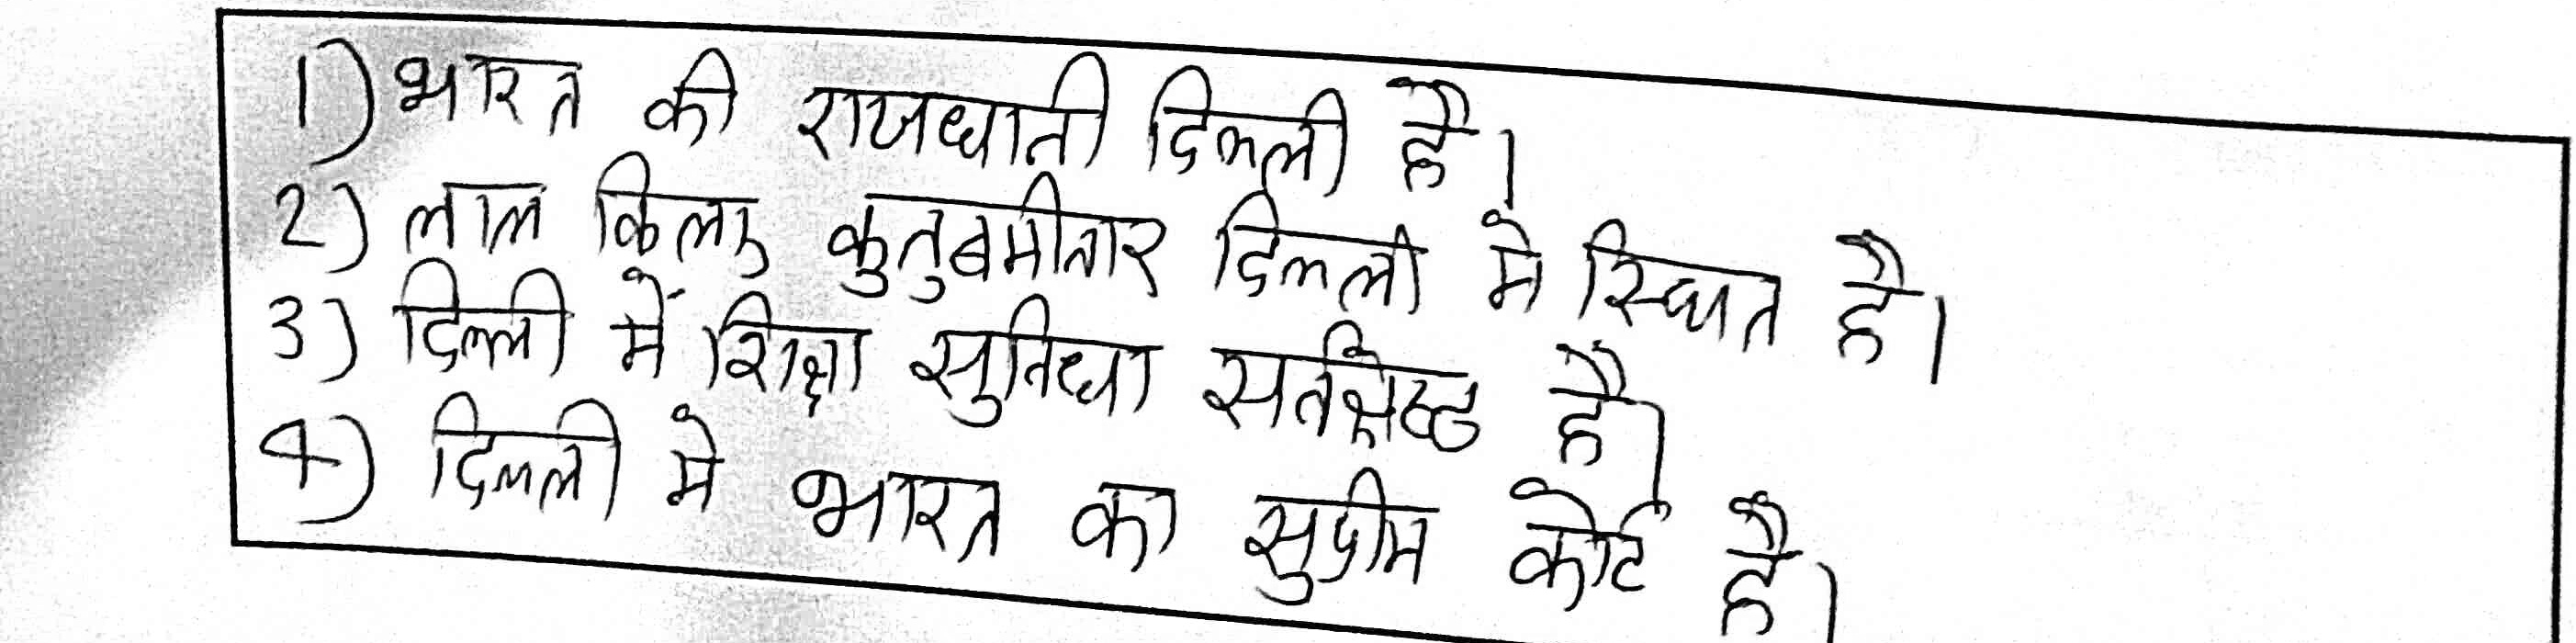 1) भारत की राजधानी दिल्ली है।
2) लाल किला, कुतुबमीनार दिल्ली मे स्थित है।
3) दिल्ली में शिक्षा सुविधा सर्वश्रेष्ठ है।
4) दिल्ली मे भारत का सुप्रीम कोर्ट है।